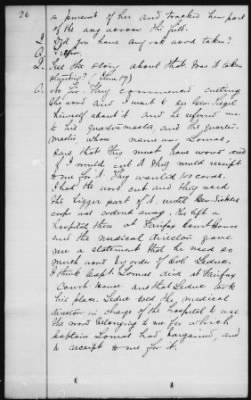 26
a present of her and tracked her part
of the way across the hill.
Q. Did you have any oak wood taken?
A. Yes sir.
Q. Tell the story about that. Was it taken
(Item 17)
A. No sir. They commenced cutting
the wood and I went to see Gen Sigel
himself about it and he referred me
to his Quartermaster, and the Quarter-
master whose name was Lomas
said that they must have wood and
if I would cut it they would receipt
to me for it. They would 100 cords.
I had the wood cut and they used
the bigger part of it until Gen Sickles
corp was ordered away. He left a
hospital there at Fairfax Court House
and the medical director gave
me a statement that he used so
much wood by order of Col. Leduc.
I think Capt. Lomas died at Fairfax
Court house and that Leduc took
his place. Leduc told the medical
director in charge of the hospital to use
the wood belonging to me for which
Captain Lomas had bargained, and
to receipt to me for it.